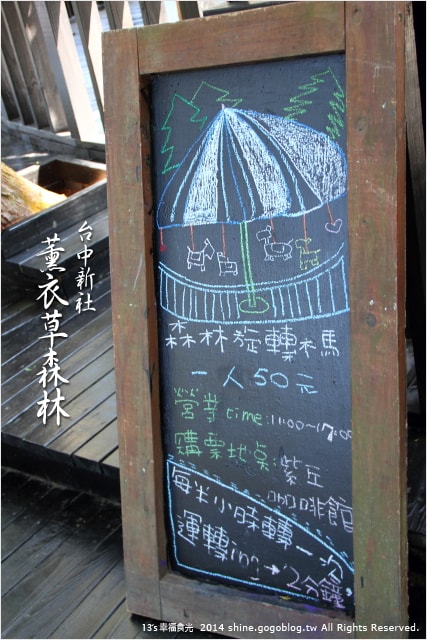 台中新社
薰衣草森林
森林旋轉木馬
一人50元
營業time:11:00~17:00
購票地點:紫丘
咖啡館
每半小時轉一次,
運轉ing→2分鐘,
13's幸福食光 2014 shine.gogoblog.tw All Rights Reserved.